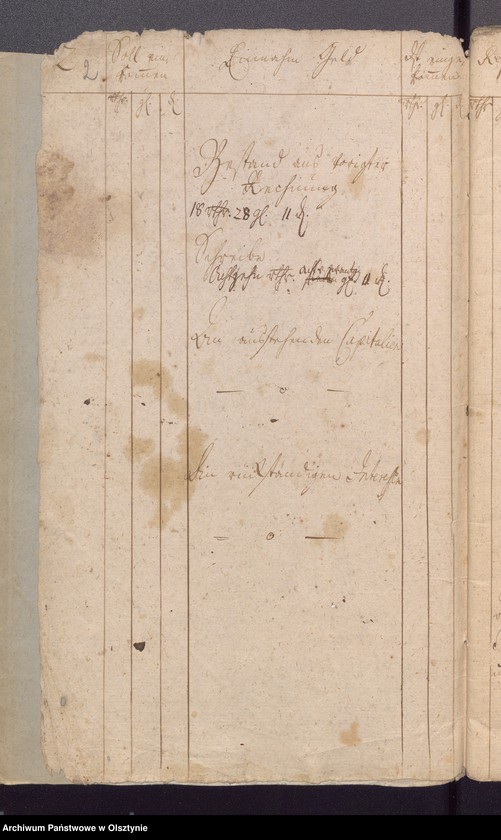 2
Soll ein
kommen
Einnahm Geld
Ist einge
kommen
rthr. gl. ₰
rthr. gl. ₰
rthr.
Bestand aus voriger
Rechnung
18 rthr. 28 gl. 11 ₰.
Schreibe
Achtzehn rthr. acht u. zwantzig gl. 11 ₰.
An ausstehenden Capitalien
— 0 —
An rückständigen Interessen
= 0 —
Archiwum Państwowe w Olsztynie